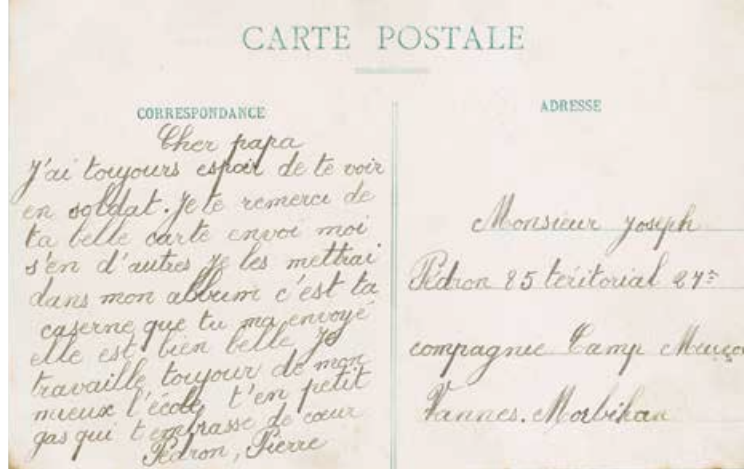 CARTE POSTALE
CORRESPONDANCE
Cher papa
J'ai toujours espoir de te voir
en soldat. Je te remerci de
ta belle carte envoi moi
s'en d'autres je les mettrai
dans mon album c'est ta
caserne que tu ma envoyé
elle est bien belle je
travaille toujour de mon
mueux l'école t'en petit
gas qui t'embrasse de cœur
Pédron, Pierre
ADRESSE
Monsieur Joseph
Pédron 85 teritorial 27e
compagnie Camp
Vannes. Morbihan